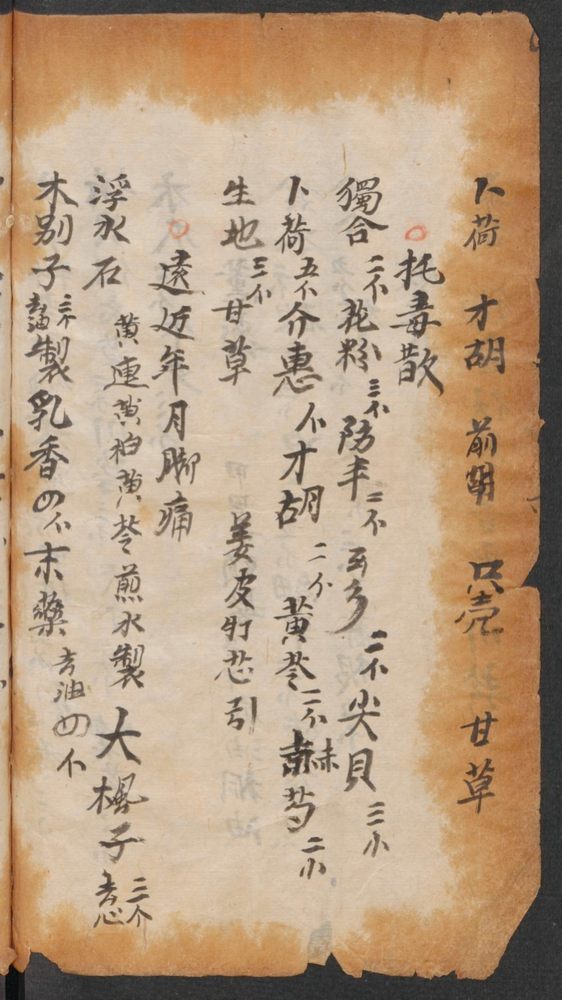 卜荷 才胡 前胡 只壳 甘草
托毒散
獨合二个花粉三个防丰二个西乡二个尖貝三小
卜荷五个介惠个才胡二个黄芩二个赫芍二小
生地三个甘草 姜皮灯芯引
遠近年月脚痛
浮水石 黄連黄柏黄芩煎水製 大楓子三个去心
木别子三个去油製乳香四个末藥去油四个